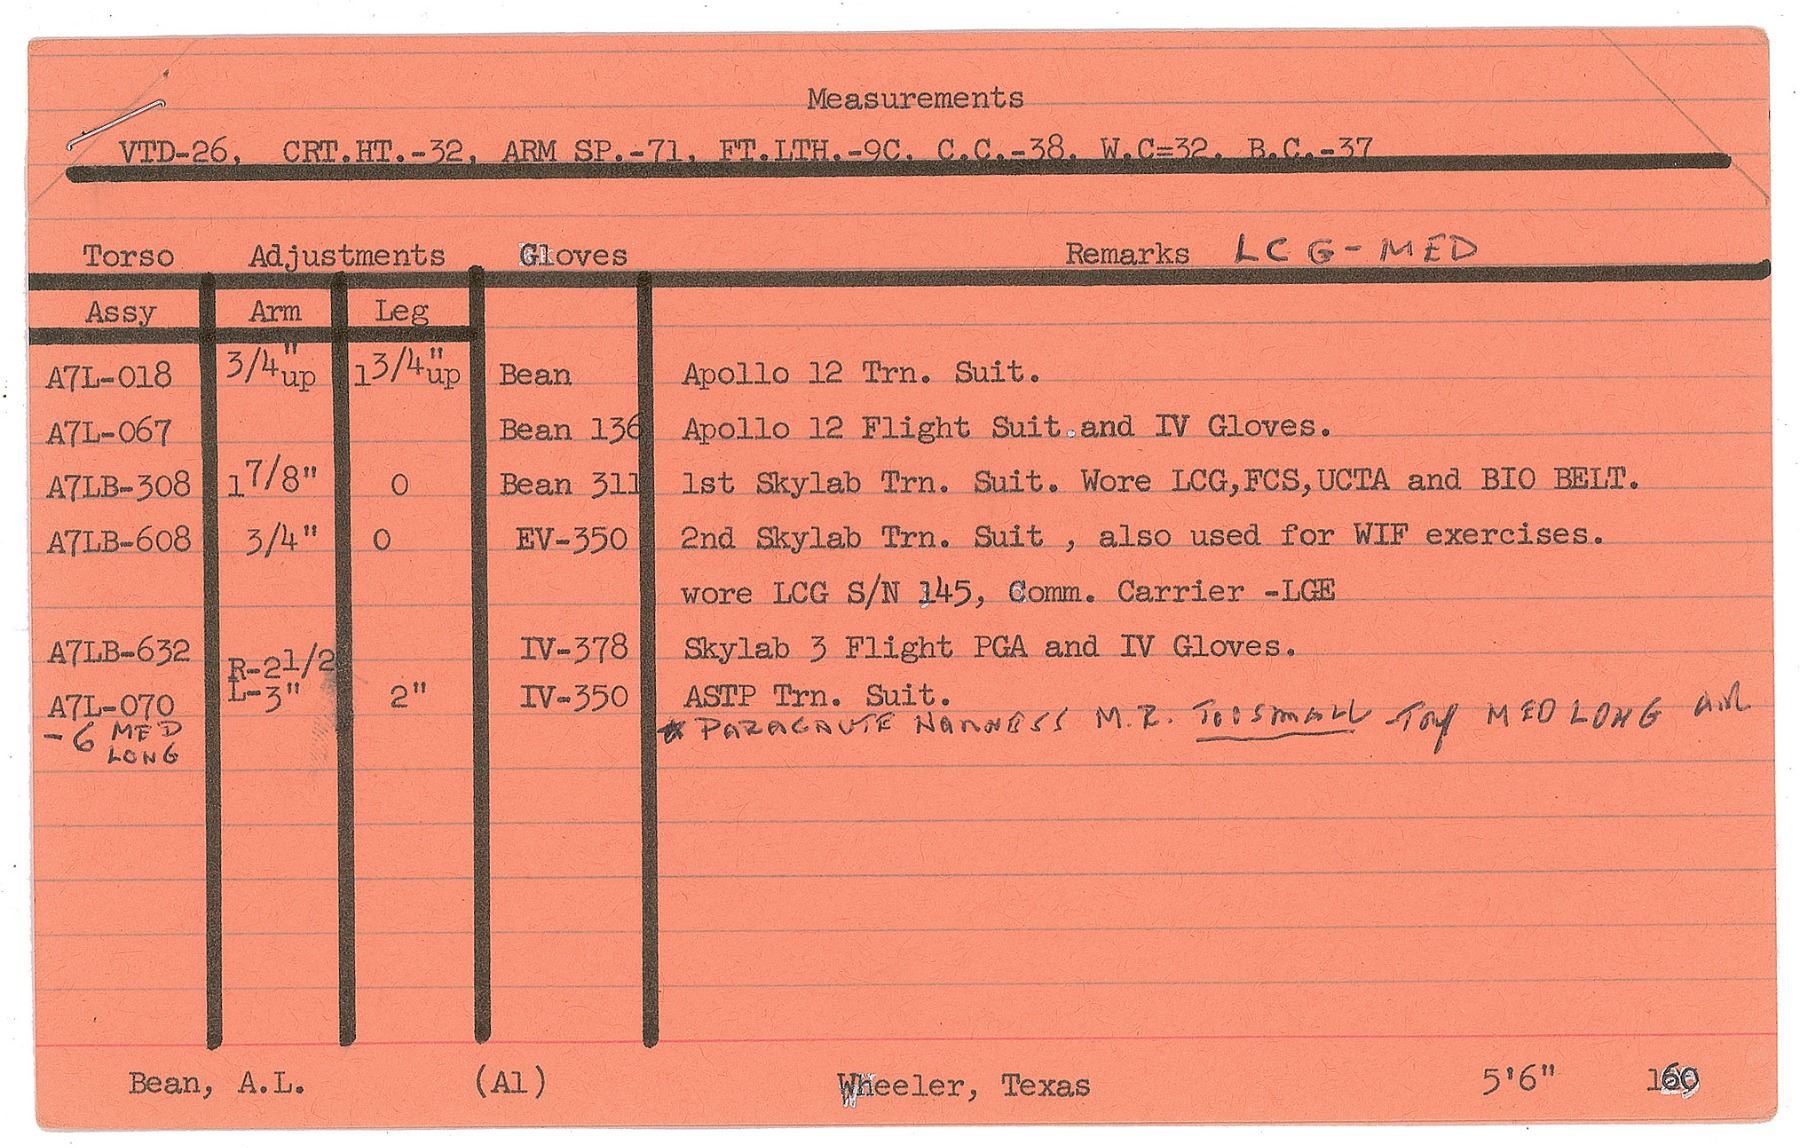 Measurements
VTD-26, CRT.HT.-32, ARM SP.-71, FT.LTH.-9C. C.C.-38. W.C=32. B.C.-37
Torso Adjustments Gloves Remarks LCG-MED
Assy Arm Leg
A7L-018 3/4"up 1 3/4"up Bean Apollo 12 Trn. Suit.
A7L-067 Bean 136 Apollo 12 Flight Suit.and IV Gloves.
A7LB-308 1 7/8" 0 Bean 311 1st Skylab Trn. Suit. Wore LCG,FCS,UCTA and BIO BELT.
A7LB-608 3/4" 0 EV-350 2nd Skylab Trn. Suit , also used for WIF exercises.
wore LCG S/N 145, Comm. Carrier -LGE
A7LB-632 IV-378 Skylab 3 Flight PGA and IV Gloves.
R-2 1/2
A7L-070 L-3" 2" IV-350 ASTP Trn. Suit.
-6 MED * PARACHUTE HARNESS M.R. TOO SMALL TRY MED LONG
LONG
Bean, A.L. (Al) Wheeler, Texas 5'6" 160